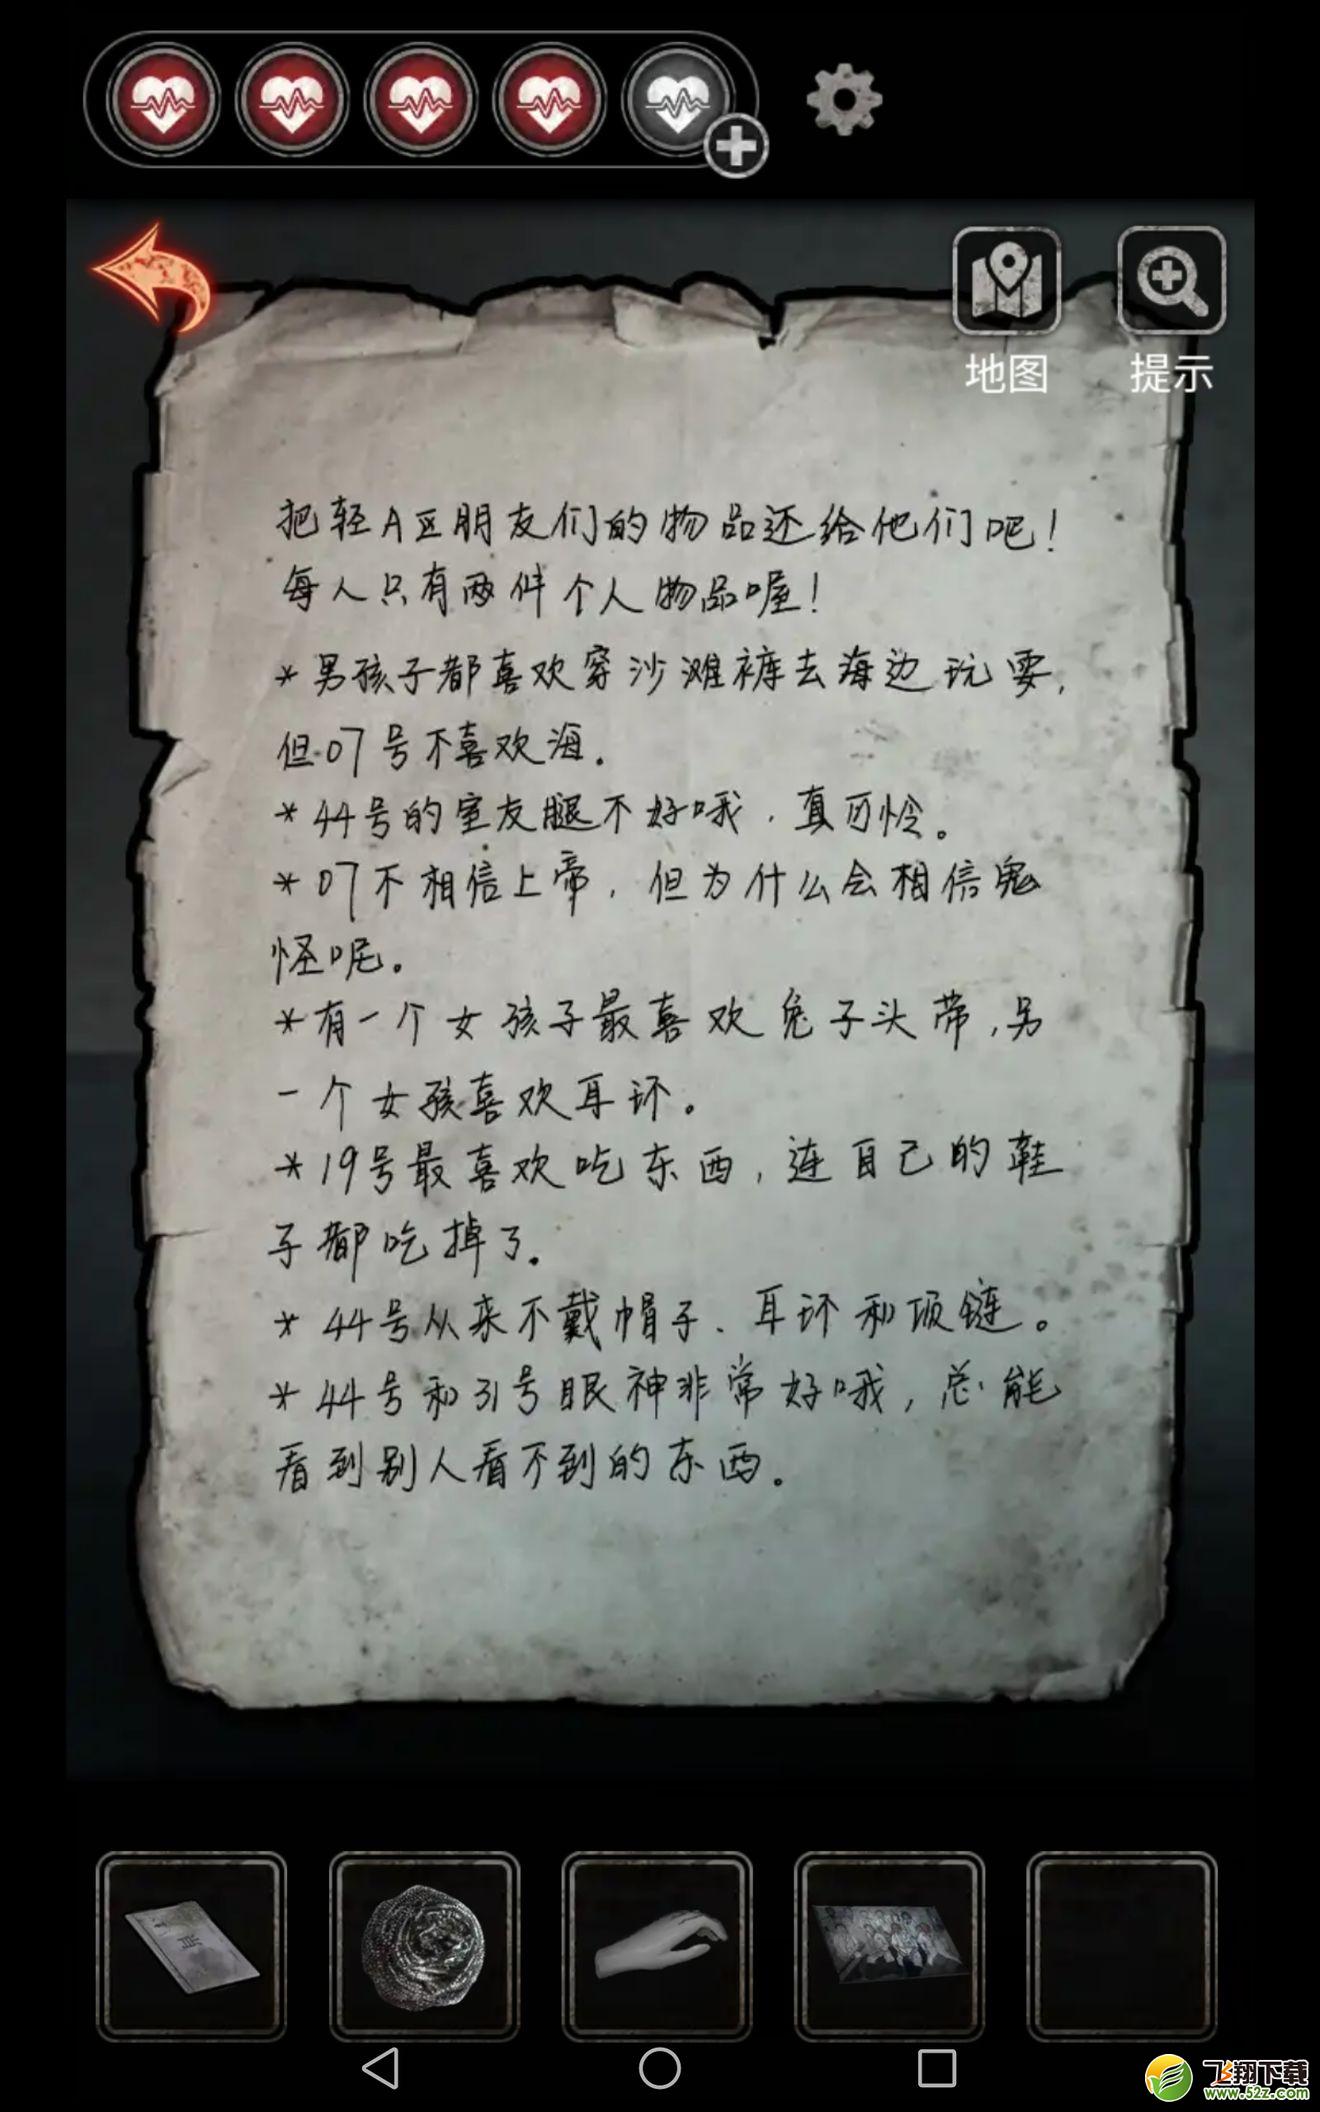 地图
提示
把轻A区朋友们的物品还给他们吧！
每人只有两件个人物品喔！
*男孩子都喜欢穿沙滩裤去海边玩耍，
但07号不喜欢海。
*44号的室友腿不好哦，真可怜。
*07不相信上帝，但为什么会相信鬼
怪呢。
*有一个女孩子最喜欢兔子头带，另
一个女孩喜欢耳环。
*19号最喜欢吃东西，连自己的鞋
子都吃掉了。
*44号从来不戴帽子、耳环和项链。
*44号和31号眼神非常好哦，总能
看到别人看不到的东西。
飞翔下载
www.52z.com